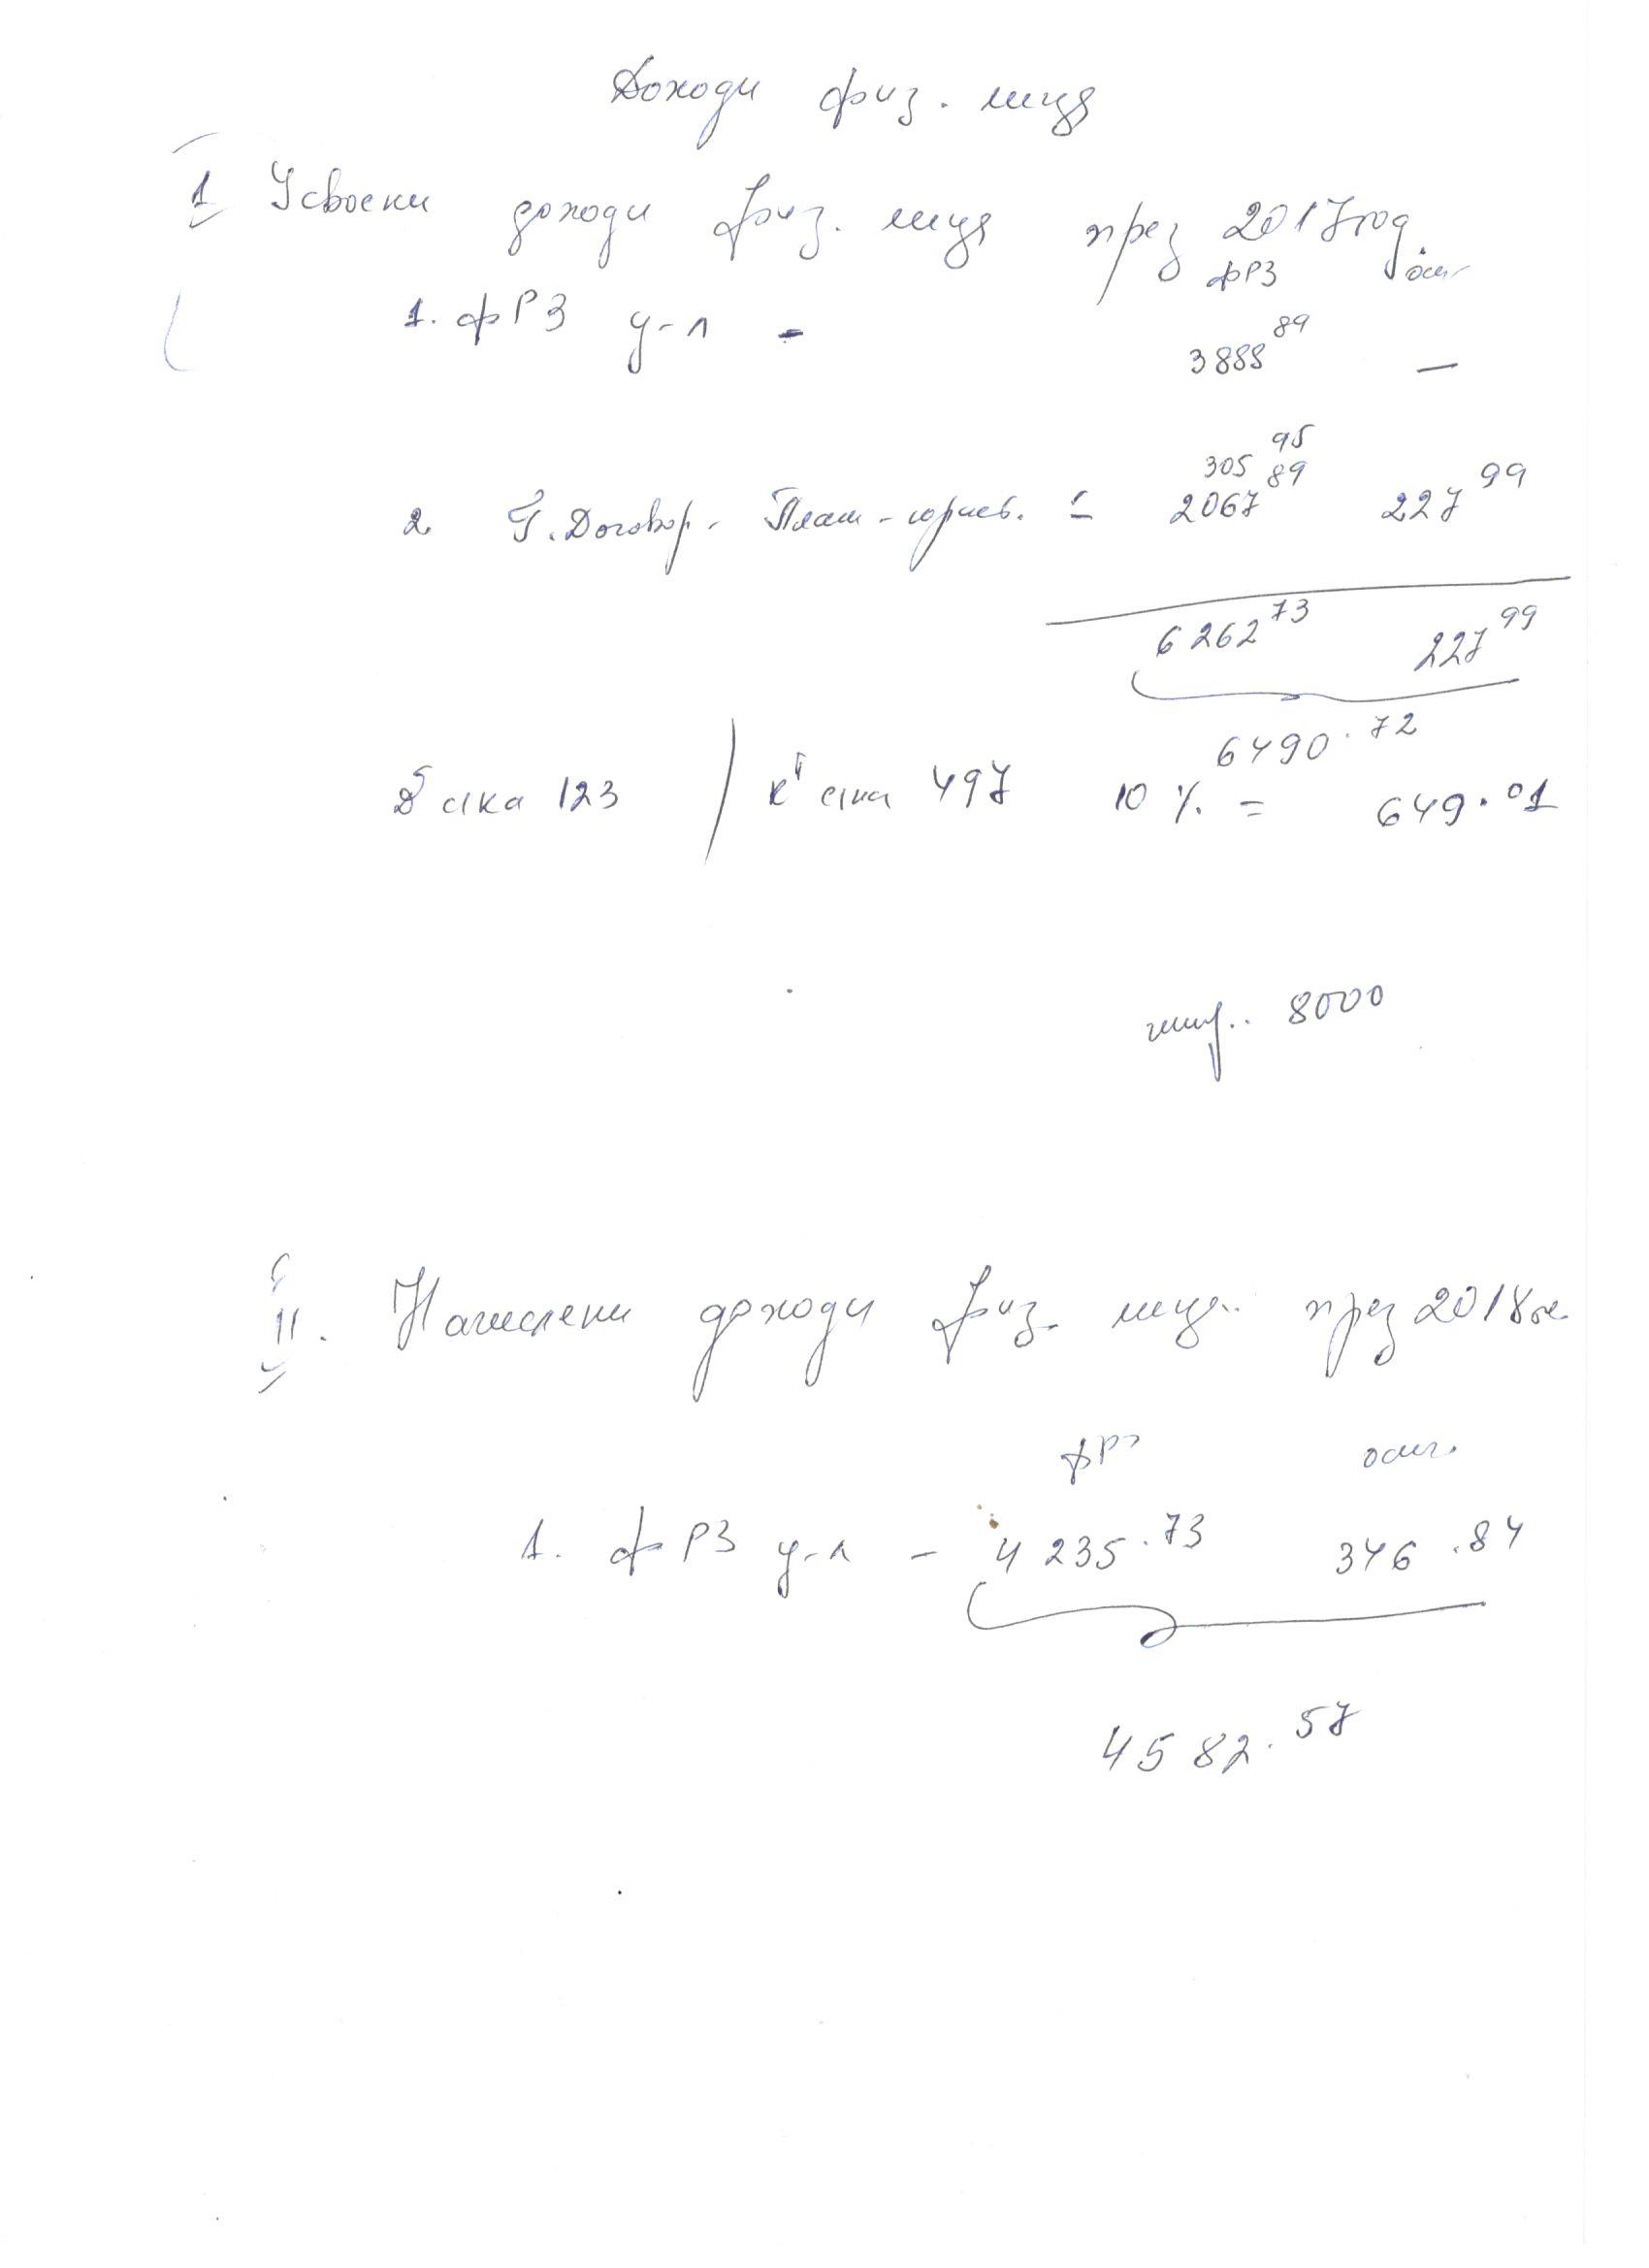 Доходи физ. лица
I Усвоени доходи физ. лица през 2017 год.
ФРЗ осиг.
1. ФРЗ у-л - 3888 89 —
305 95
2. Г. Договор. = 2067 89 227 99
6262 73 227 99
6490.72
Дт с/ка 123 / Кт с/ка 497 10 % = 649.01
8000
II. Начислени доходи физ. лица през 2018
ФРЗ осиг.
1. ФРЗ у-л - 4235.73 346.84
4582.57